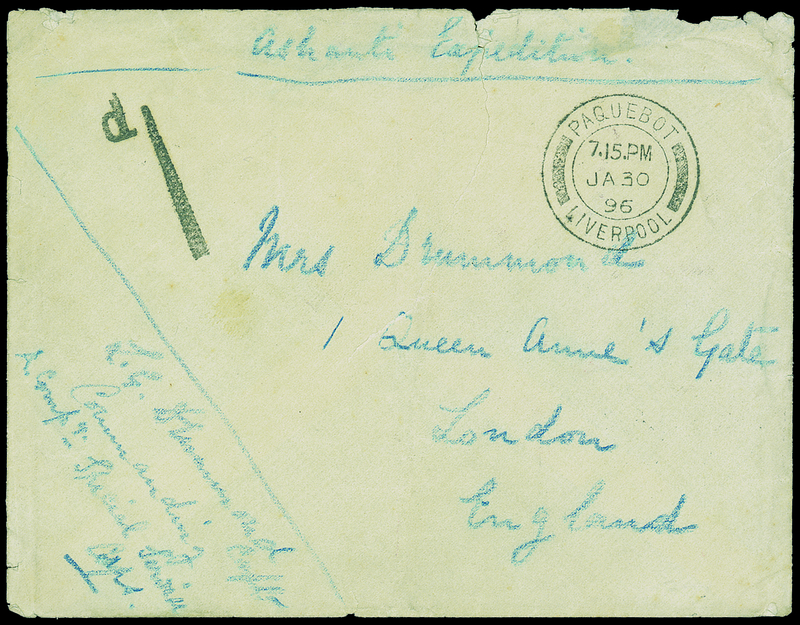 Ashanti Expedition.
1d
PAQUEBOT
7.15.PM
JA 30
96
LIVERPOOL
Mrs Drummond
1 Queen Anne's Gate
London
England
L.G. Drummond
Commanding
Comp y. Special Service
Corps.